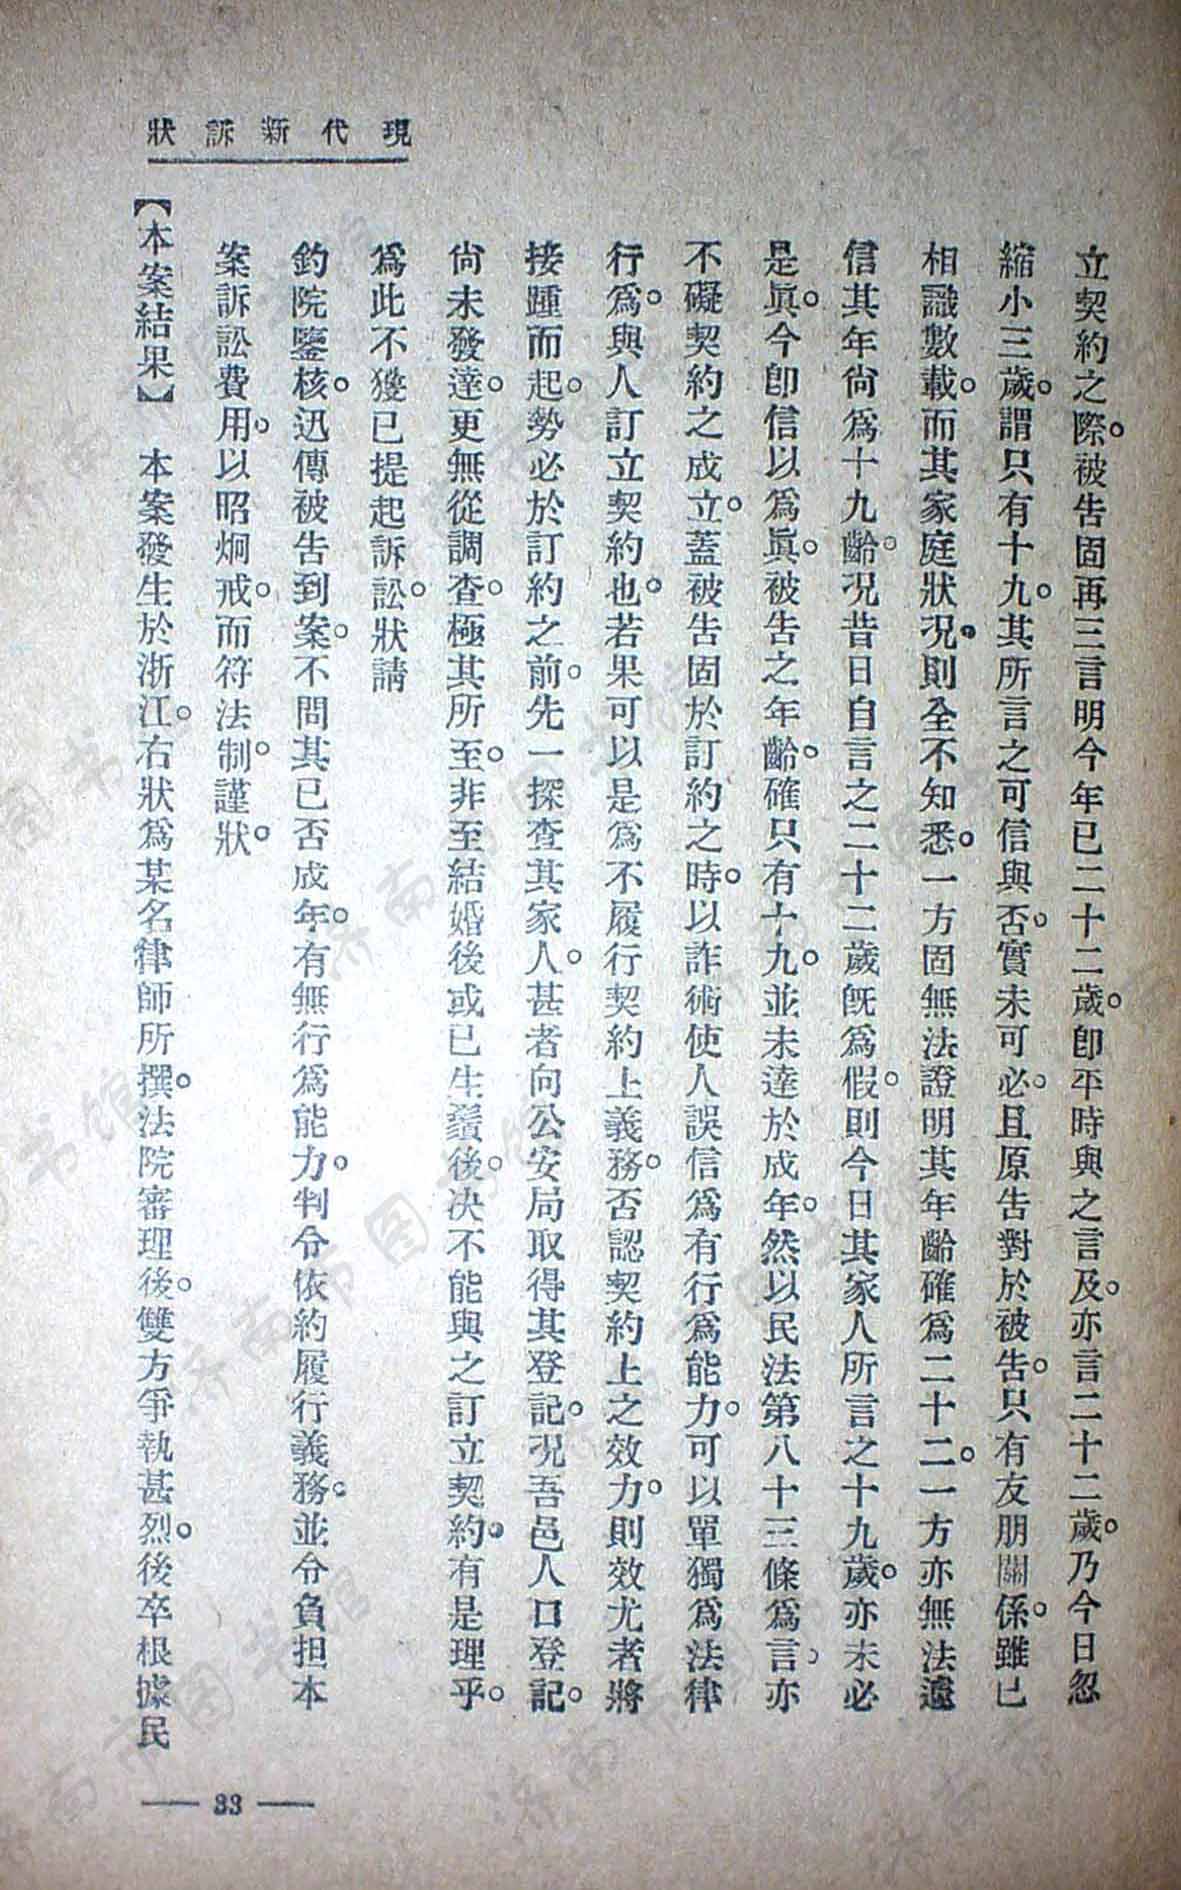 現代新訴狀
立契約之際。被告固再三言明今年已二十二歲。卽平時與之言及。亦言二十二歲。乃今日忽
縮小三歲。謂只有十九。其所言之可信與否。實未可必。且原告對於被告。只有友朋關係。雖已
相識數載。而其家庭狀況。則全不知悉。一方固無法證明其年齡確爲二十二。一方亦無法遠
信其年尙爲十九齡。況昔日自言之二十二歲旣爲假。則今日其家人所言之十九歲。亦未必
是眞。今卽信以爲眞。被告之年齡。確只有十九。並未達於成年。然以民法第八十三條爲言。亦
不礙契約之成立。蓋被告固於訂約之時。以詐術使人誤信爲有行爲能力。可以單獨爲法律
行爲。與人訂立契約也。若果可以是爲不履行契約上義務。否認契約上之效力。則效尤者將
接踵而起。勢必於訂約之前。先一探查其家人。甚者向公安局取得其登記。況吾邑人口登記。
尙未發達。更無從調查。極其所至。非至結婚後或已生鬚後。决不能與之訂立契約。有是理乎。
爲此不獲已提起訴訟。狀請
鈞院鑒核。迅傳被告到案。不問其已否成年。有無行爲能力。判令依約履行義務。並令負担本
案訴訟費用。以昭炯戒。而符法制。謹狀。
【本案結果】　本案發生於浙江。右狀爲某名律師所撰。法院審理後。雙方爭執甚烈。後卒根據民
— 33 —
济南市图书馆